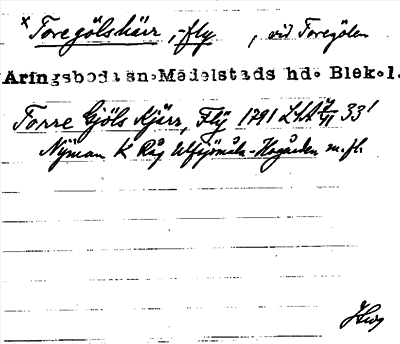 × Toregölskärr, -fly, vid Toregölen
Åringsboda sn. Medelstads hd. Blek. l.
Torre Gjöls Kjärr, Flÿ 1791 LSA 7/41 33'
Nyman K Råg Ulfsjömåla - Hogården m. fl.